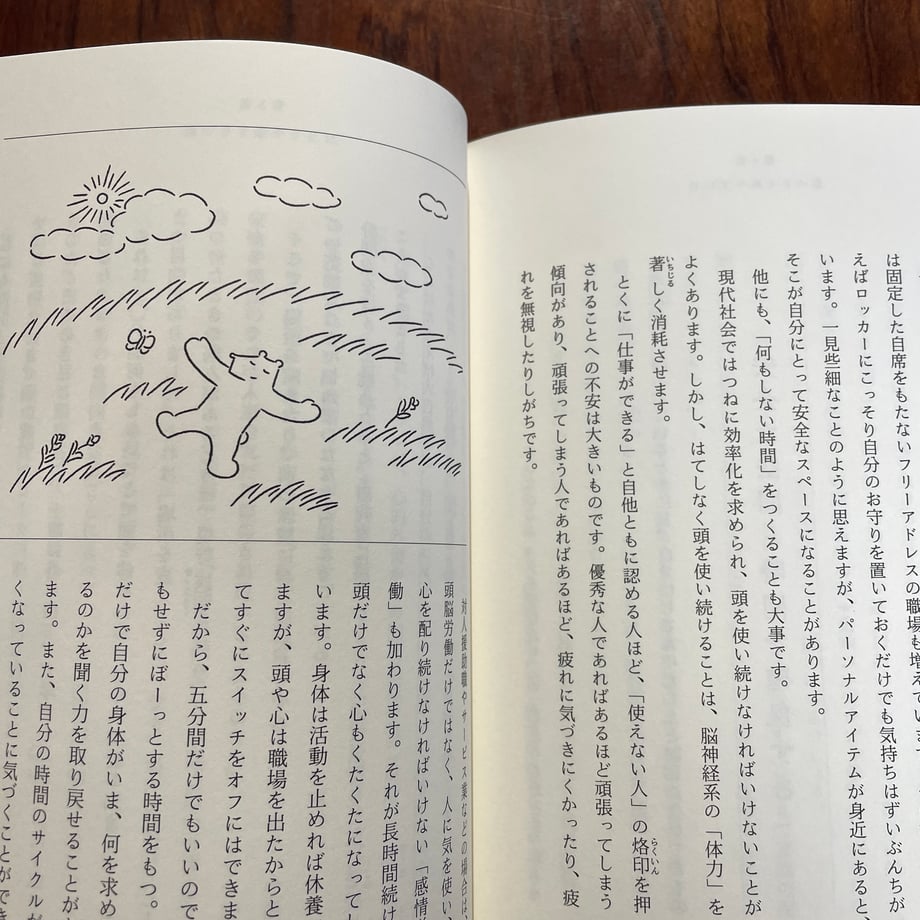 は固定した自席をもたないフリーアドレスの職場も増えています
えばロッカーにこっそり自分のお守りを置いておくだけでも気持ちはずいぶんちが
います。一見些細なことのように思えますが、パーソナルアイテムが身近にあると、
そこが自分にとって安全なスペースになることがあります。
他にも、「何もしない時間」をつくることも大事です。
現代社会ではつねに効率化を求められ、頭を使い続けなければいけないことが
よくあります。しかし、はてしなく頭を使い続けることは、脳神経系の「体力」を
著いちじるしく消耗させます。
とくに「仕事ができる」と自他ともに認める人ほど、「使えない人」の烙印らくいんを押
されることへの不安は大きいものです。優秀な人であればあるほど頑張ってしまう
傾向があり、頑張ってしまう人であればあるほど、疲れに気づきにくかったり、疲
れを無視したりしがちです。
対人援助職やサービス業などの場合は、
頭脳労働だけではなく、人に気を使い、
心を配り続けなければいけない「感情
働」も加わります。それが長時間続け
頭だけでなく心もくたくたになってし
います。身体は活動を止めれば休養
ますが、頭や心は職場を出たからと
てすぐにスイッチをオフにはできま
だから、五分間だけでもいいので
もせずにぼーっとする時間をもつ。
だけで自分の身体がいま、何を求め
るのかを聞く力を取り戻せることが
ます。また、自分の時間のサイクルが
くなっていることに気づくことができ